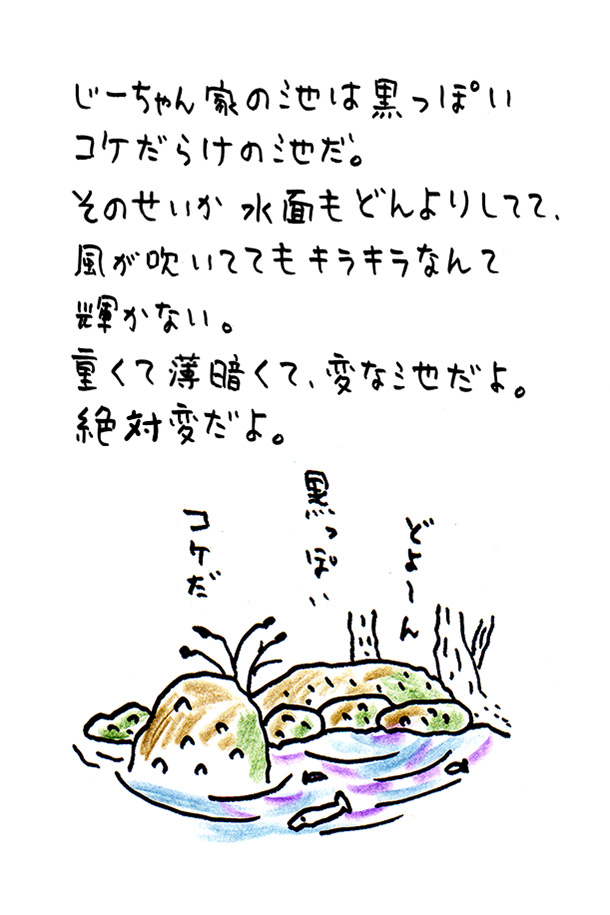 じーちゃん家の池は黒っぽい
コケだらけの池だ。
そのせいか 水面もどんよりしてて、
風が吹いててもキラキラなんて
輝かない。
重くて薄暗くて、変な池だよ。
絶対変だよ。
どよ〜ん
黒っぽい
コケだ